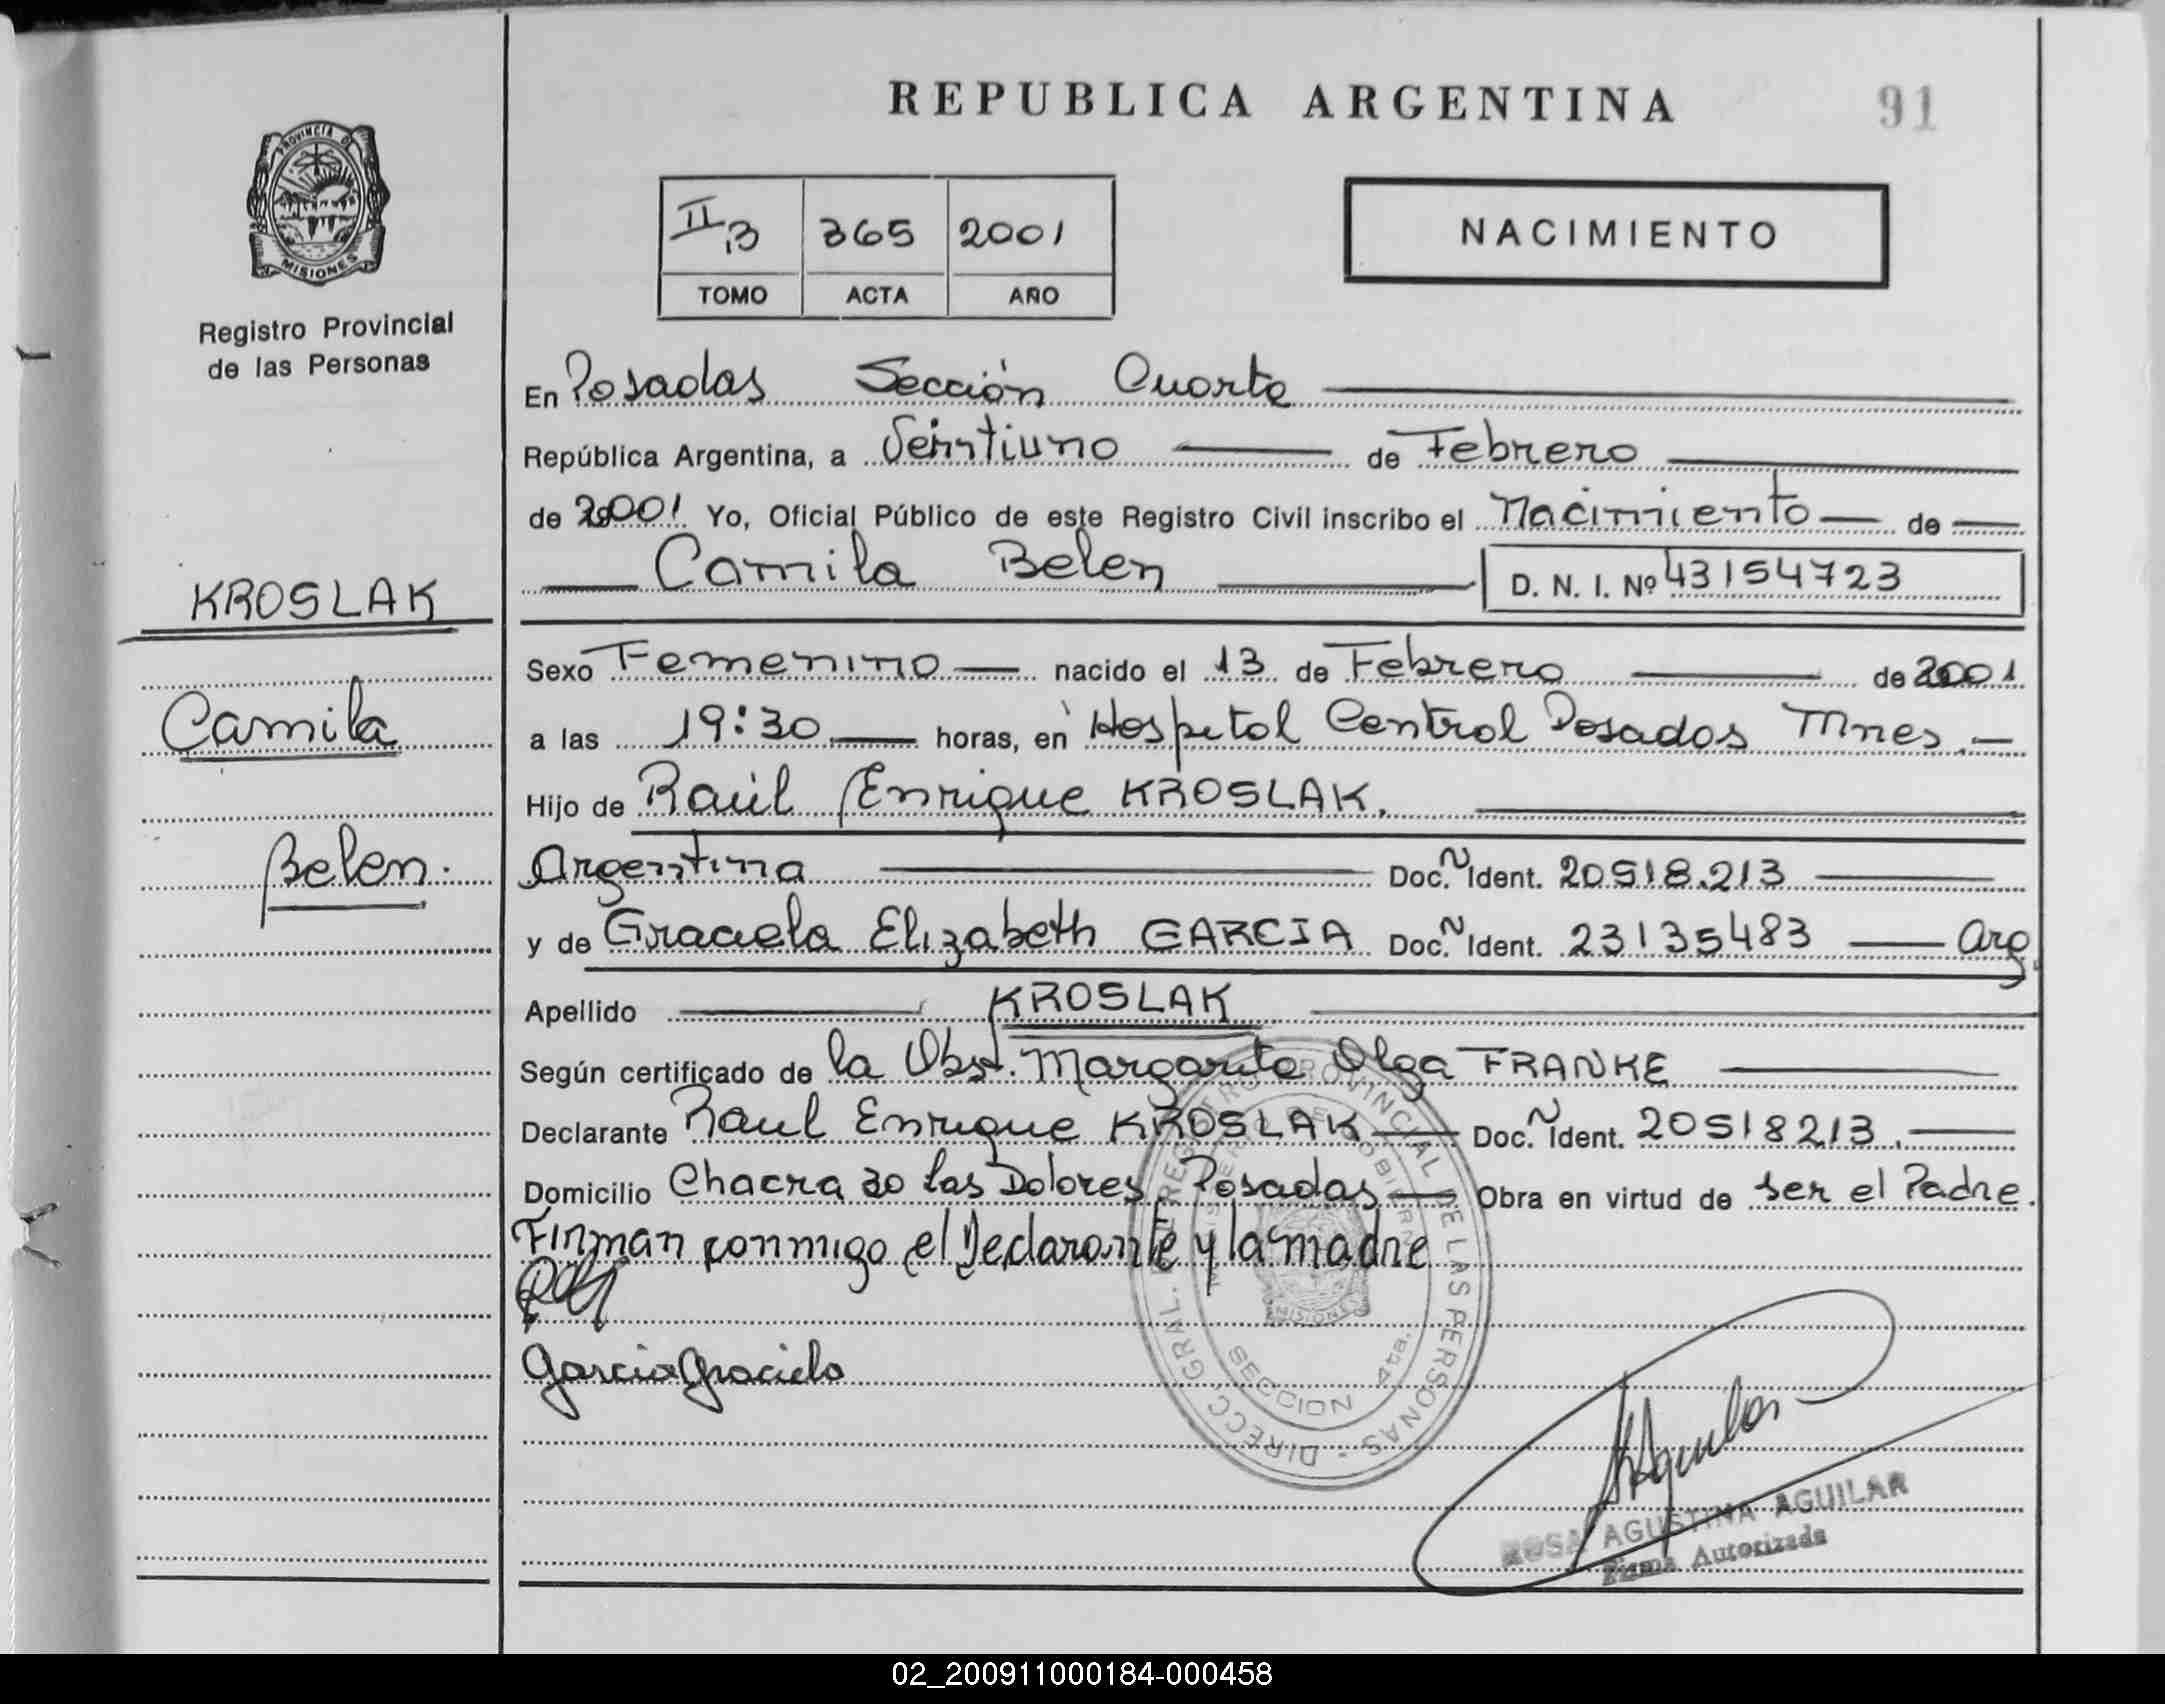 REPUBLICA ARGENTINA
91
PROVINCIA D
MISIONES
Registro Provincial
de las Personas
II 13 365 2001
TOMO ACTA AÑO
NACIMIENTO
En Posadas Sección Cuarta
República Argentina, a Veintiuno de Febrero
de 2001 Yo, Oficial Público de este Registro Civil inscribo el Nacimiento de
Camila Belen D. N. I. Nº 43154723
KROSLAK
Camila
Belen.
Sexo Femenino nacido el 13 de Febrero de 2001
a las 19:30 horas, en Hospital Central Posadas Mnes.
Hijo de Raúl Enrique KROSLAK.
Argentina Doc. Ident. 20518.213
y de Graciela Elizabeth GARCIA Doc. Ident. 23135483 Arg.
Apellido KROSLAK
Según certificado de la Obst. Margarita Olga FRANKE
Declarante Raul Enrique KROSLAK Doc. Ident. 20518213.
Domicilio Chacra 30 las Dolores, Posadas Obra en virtud de ser el Padre.
Firman conmigo el Declarante y la madre
Garcia Graciela
DIRECC. GRAL. REGISTRO PROVINCIAL DE LAS PERSONAS
MISIONES
SECCION 4ta.
Aguilar
ROSA AGUSTINA AGUILAR
Firma Autorizada
02_200911000184-000458